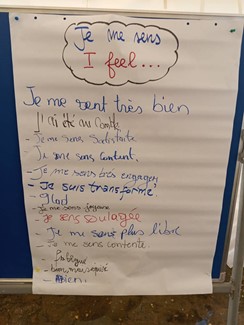 Je me sens
I feel...
Je me sent très bien
J'ai été au
- Je me sens satisfaite
- Je me sens content.
- Je me sens très engagé
- Je suis transformé.
- Glad
- Je me sens joyeux
- Je sens soulagée
- Je me sens plus libre
- Je me sens contente.
fatigué
- bien,
- Bien.